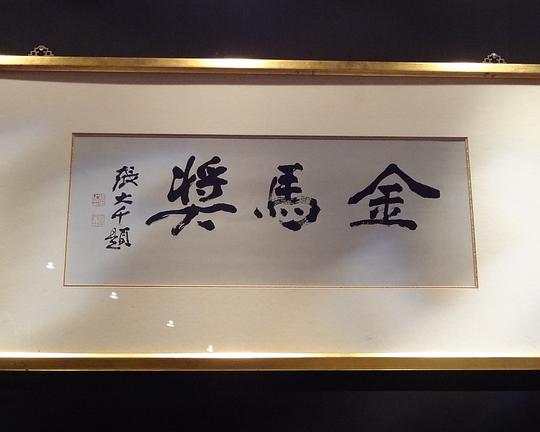 金馬奬
張大千題